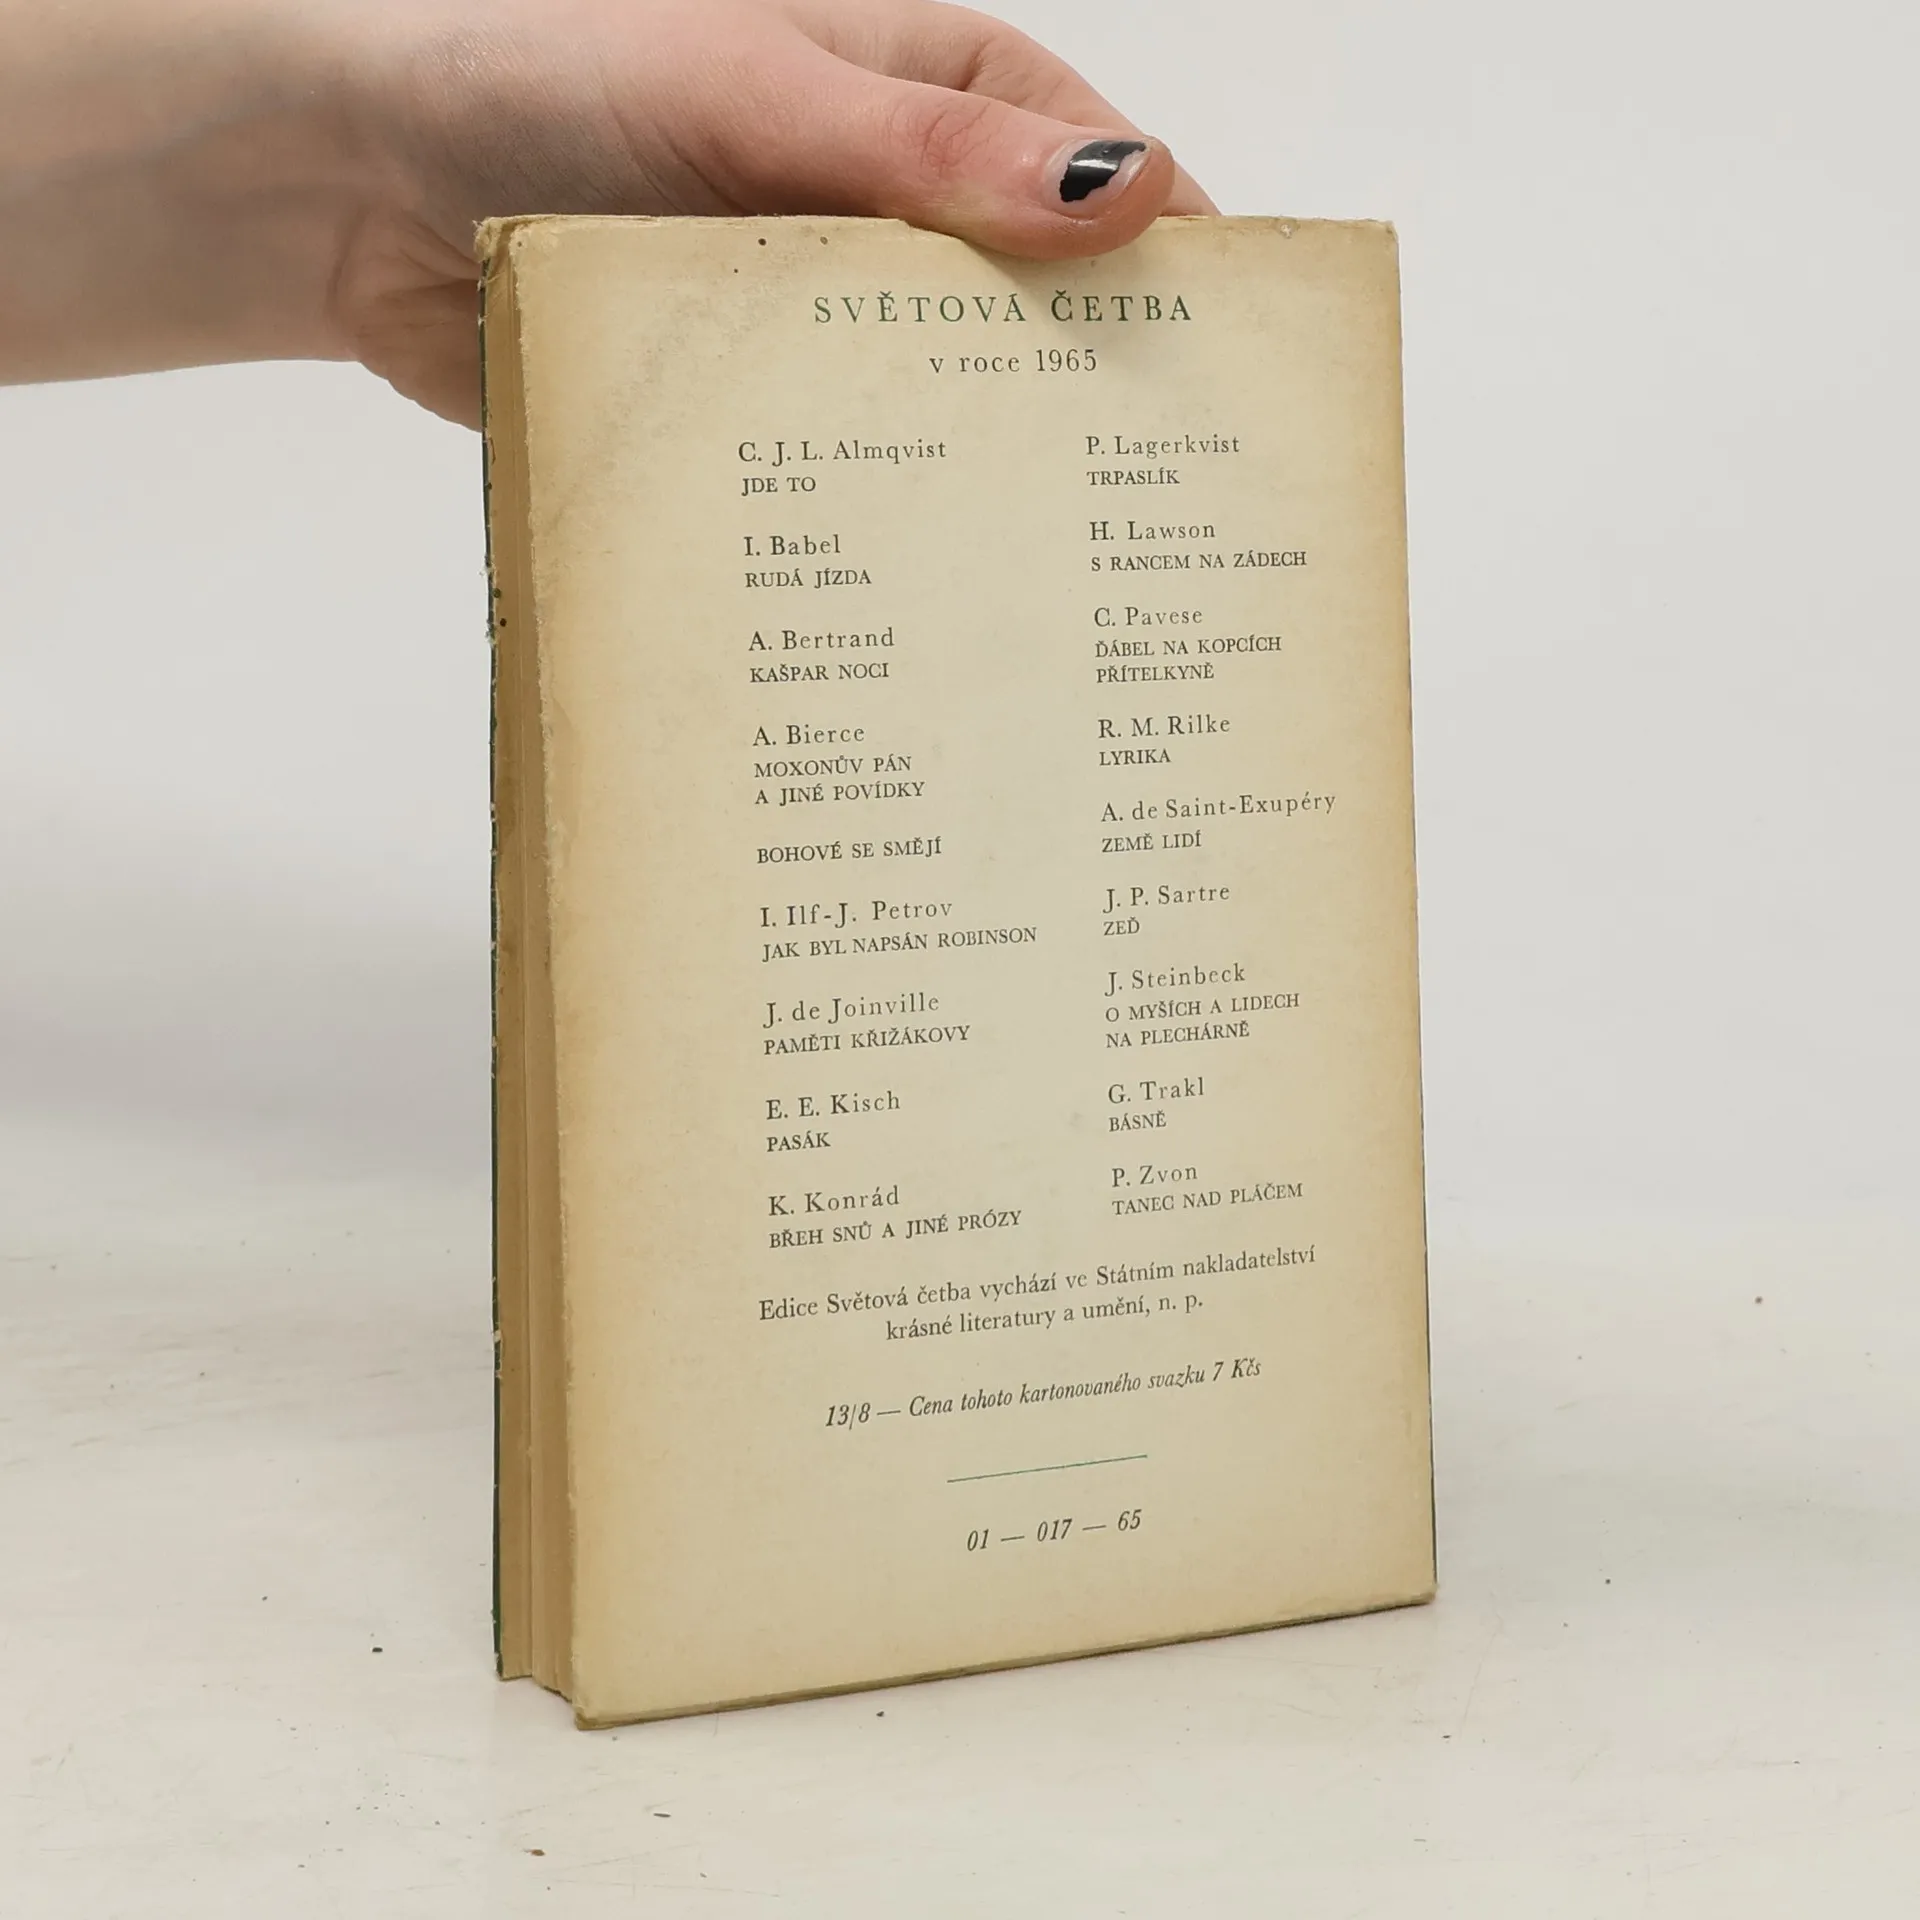 SVĚTOVÁ ČETBA
v roce 1965
C. J. L. Almqvist
JDE TO
I. Babel
RUDÁ JÍZDA
A. Bertrand
KAŠPAR NOCI
A. Bierce
MOXONŮV PÁN
A JINÉ POVÍDKY
BOHOVÉ SE SMĚJÍ
I. Ilf-J. Petrov
JAK BYL NAPSÁN ROBINSON
J. de Joinville
PAMĚTI KŘIŽÁKOVY
E. E. Kisch
PASÁK
K. Konrád
BŘEH SNŮ A JINÉ PRÓZY
P. Lagerkvist
TRPASLÍK
H. Lawson
S RANCEM NA ZÁDECH
C. Pavese
ĎÁBEL NA KOPCÍCH
PŘÍTELKYNĚ
R. M. Rilke
LYRIKA
A. de Saint-Exupéry
ZEMĚ LIDÍ
J. P. Sartre
ZEĎ
J. Steinbeck
O MYŠÍCH A LIDECH
NA PLECHÁRNĚ
G. Trakl
BÁSNĚ
P. Zvon
TANEC NAD PLÁČEM
Edice Světová četba vychází ve Státním nakladatelství
krásné literatury a umění, n. p.
13/8 — Cena tohoto kartonovaného svazku 7 Kčs
01 — 017 — 65